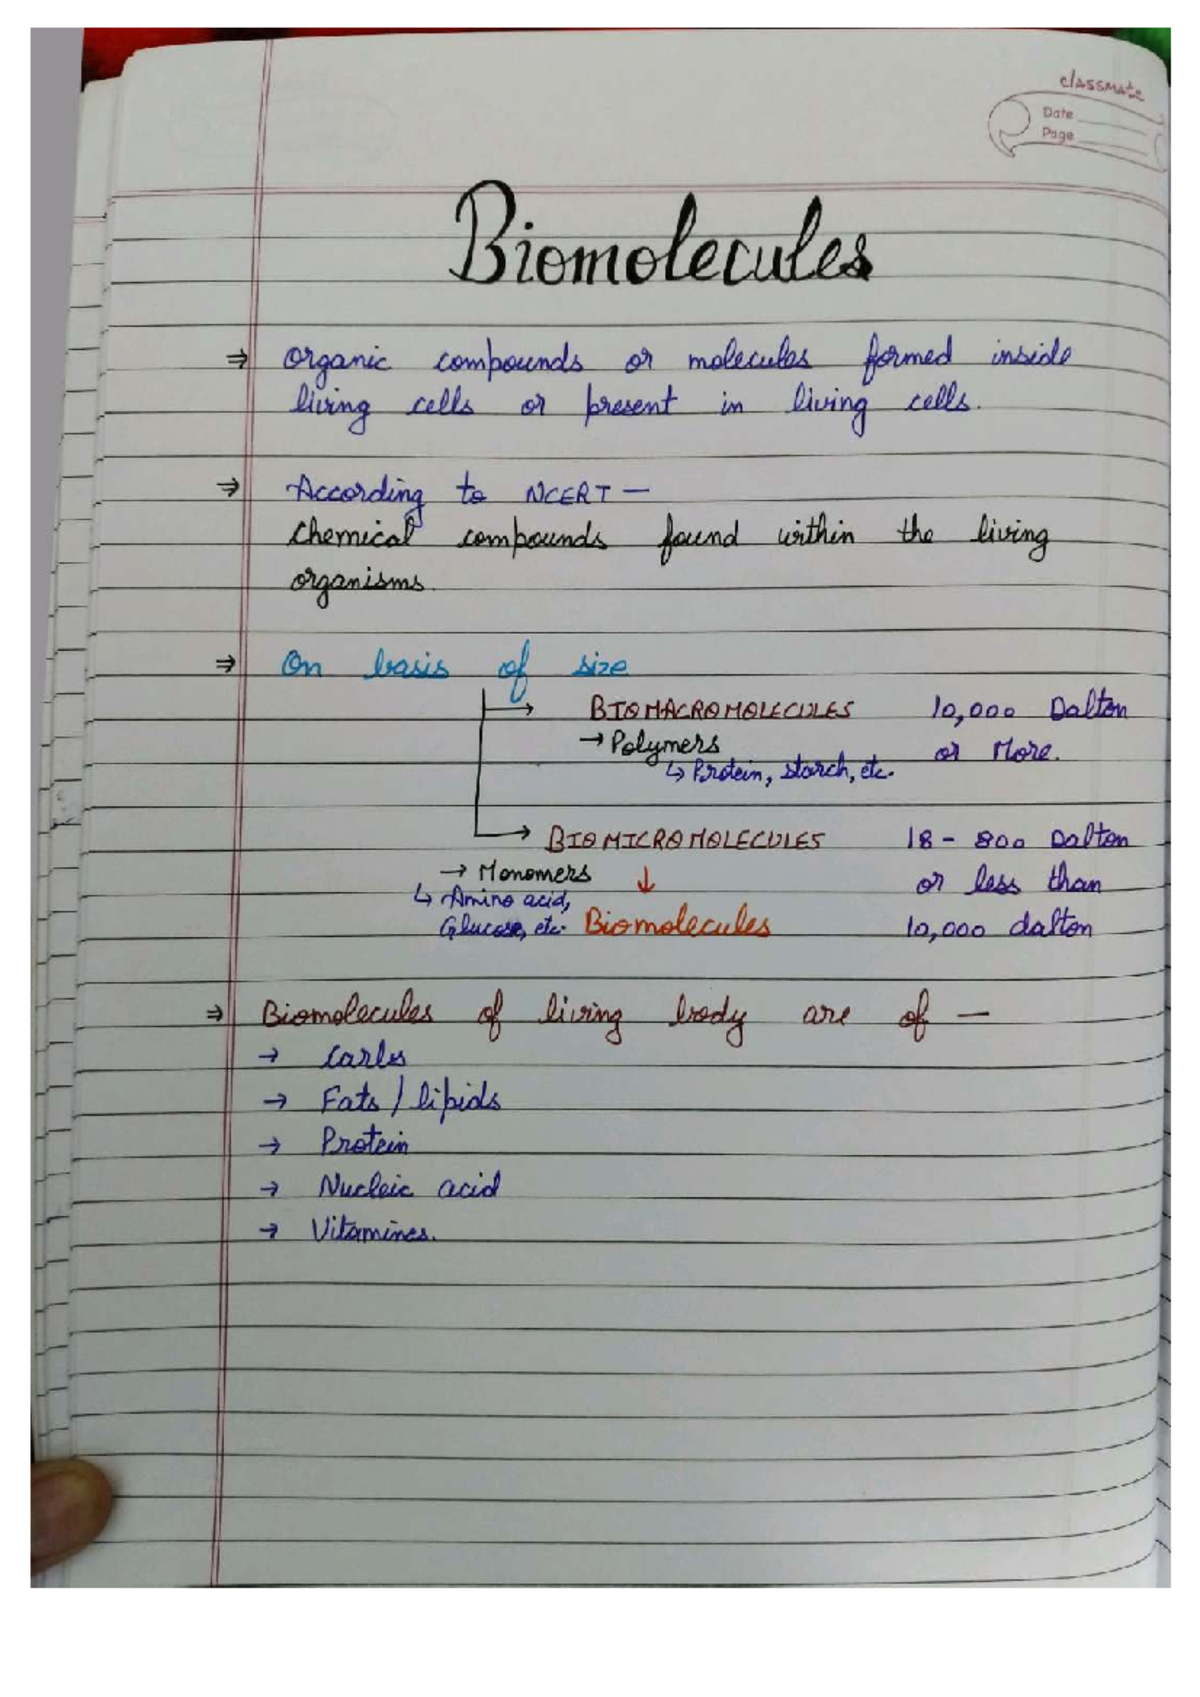 classmate
Date
Page
Biomolecules
⇒ Organic compounds or molecules formed inside
living cells or present in living cells.
⇒ According to NCERT —
Chemical compounds found within the living
organisms.
⇒ On basis of size
→ BIOMACROMOLECULES 10,000 Dalton
→ Polymers or More.
↳ Protein, starch, etc.
→ BIOMICROMOLECULES 18 - 800 Dalton
→ Monomers ↓ or less than
↳ Amino acid,
Glucose, etc. Biomolecules 10,000 dalton
⇒ Biomolecules of living body are of —
→ Carbs
→ Fats / lipids
→ Protein
→ Nucleic acid
→ Vitamines.